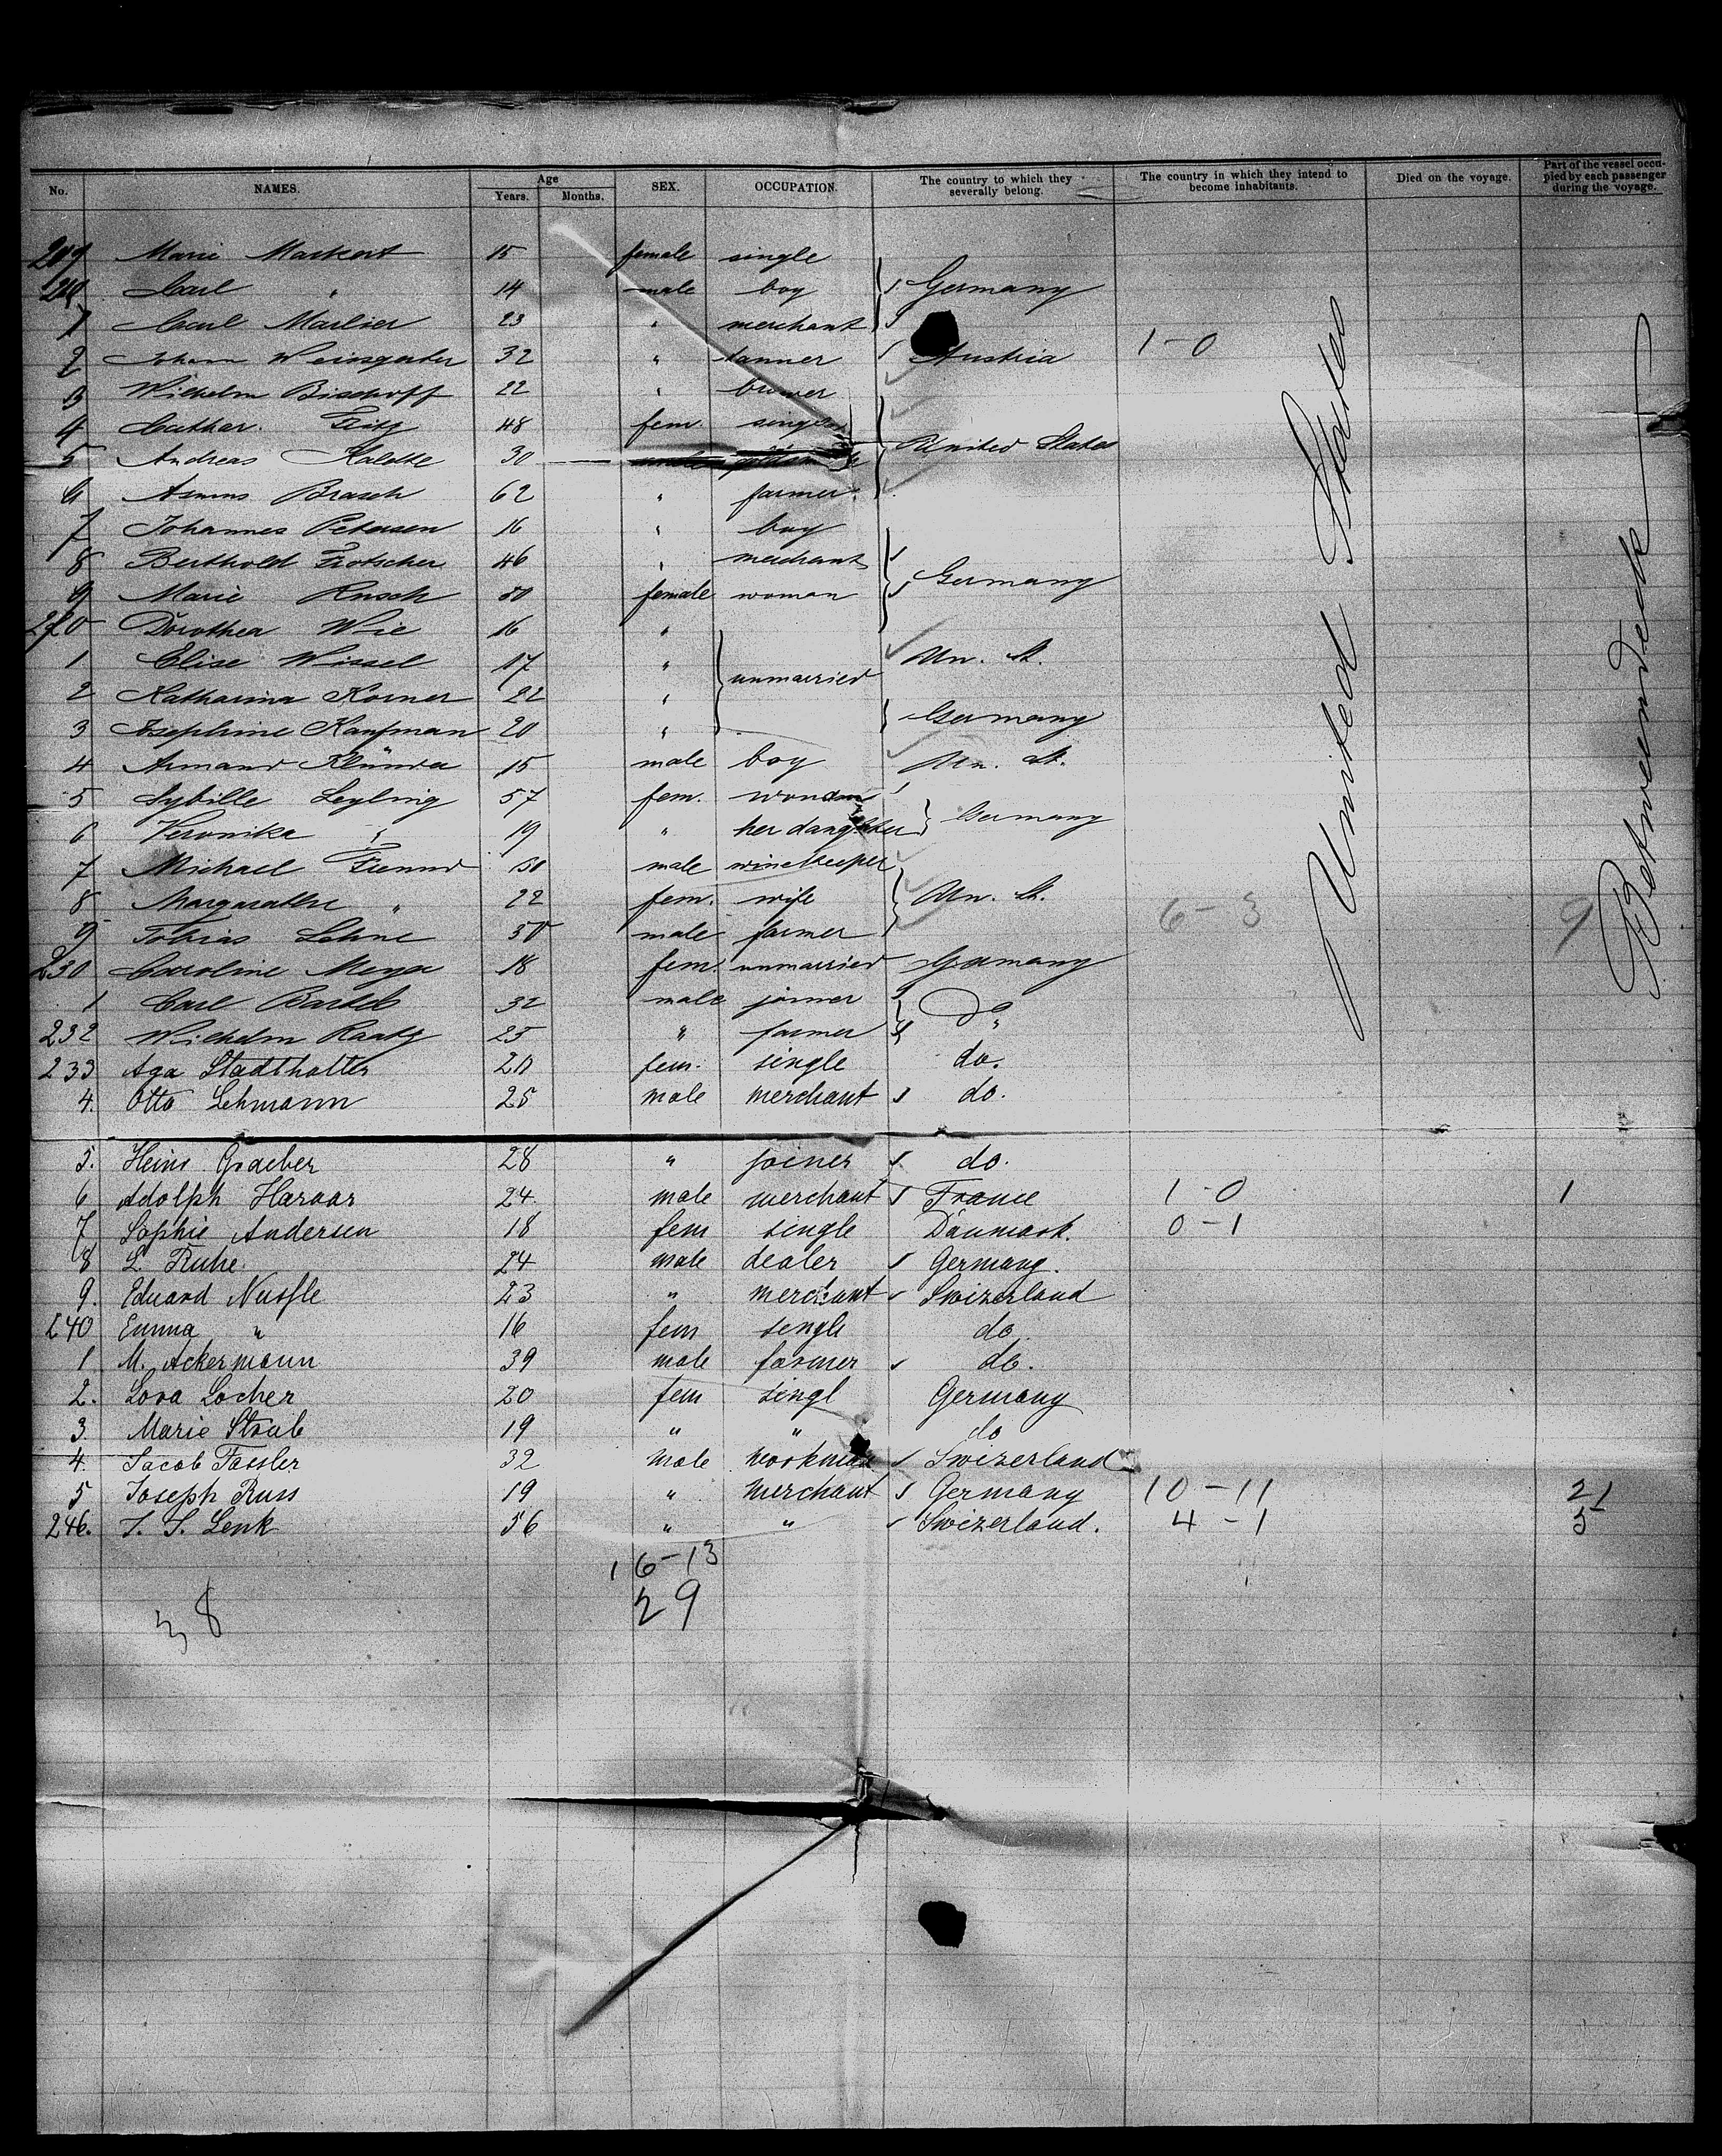 No. NAMES. Age Years. Months. SEX. OCCUPATION. The country to which they severally belong. The country in which they intend to become inhabitants. Died on the voyage. Part of the vessel occupied by each passenger during the voyage.
209 Marie Markert 15 female single
210 Carl " 14 male boy Germany
1 Carl Marlier 23 " merchant
2 Johann Weingarter 32 " tanner Austria 1-0
3 Wilhelm Bischoff 22 "
4 Cathar. Fritz 48 fem. single
5 Andreas 30 male United States
6 Asmus Brasch 62 " farmer
7 Johannes Petersen 16 " boy
8 Berthold Frotscher 46 " merchant
9 Marie Rusch female woman Germany
220 Dorothea Wie 16 "
1 Elise Wissel 17 " unmarried Un. St.
2 Katharina Korner 22 "
3 Josephine Kaufman 20 " Germany
4 Armand 15 male boy Un. St.
5 Sybille Leyling 57 fem.
6 Veronika " 19 " her daughter Germany
7 Michael male winekeeper
8 Margarethe " 22 fem. wife Un. St. 6-3 9
9 Tobias Lehne 50 male farmer
230 Caroline Meyer 18 fem. unmarried Germany
1 Carl Bartels 32 male joiner do
232 Wilhelm Raatz 25 " farmer "
233 Aga Stadthalter 20 fem. single do.
4. Otto Lehmann 25 male merchant do.
5. Heinr Graeber 28 " joiner do.
6 Adolph Haraar 24 male merchant France 1-0 1
7 Sophie Andersen 18 fem single Danmark. 0-1
8 L. Ruhe 24 male dealer Germany.
9. Eduard Nussle 23 " merchant Swizerland
240 Emma " 16 fem single do.
1 M. Ackermann 39 male farmer do.
2. Lora Locher 20 fem singl Germany
3. Marie Straub 19 " " do
4. Jacob Fassler 32 male workman Swizerland
5 Joseph Russ 19 " merchant Germany 10-11 21
246. J. S. Lenk 56 " " Swizerland. 4-1 5
16-13
29
38
United States
Betweendeck